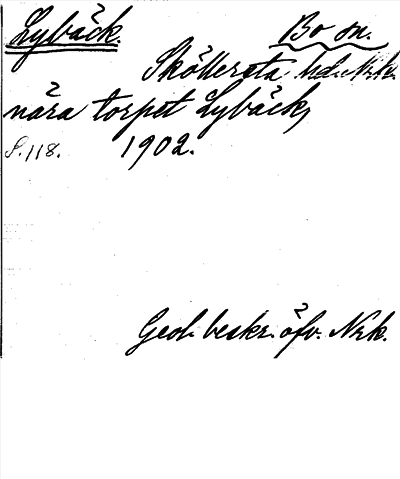 Lybäck. Bo sn.
Sköllersta hd. Nrk.
nära torpet Lybäck,
S. 118. 1902.
Geol. beskr. öfv. Nrk.